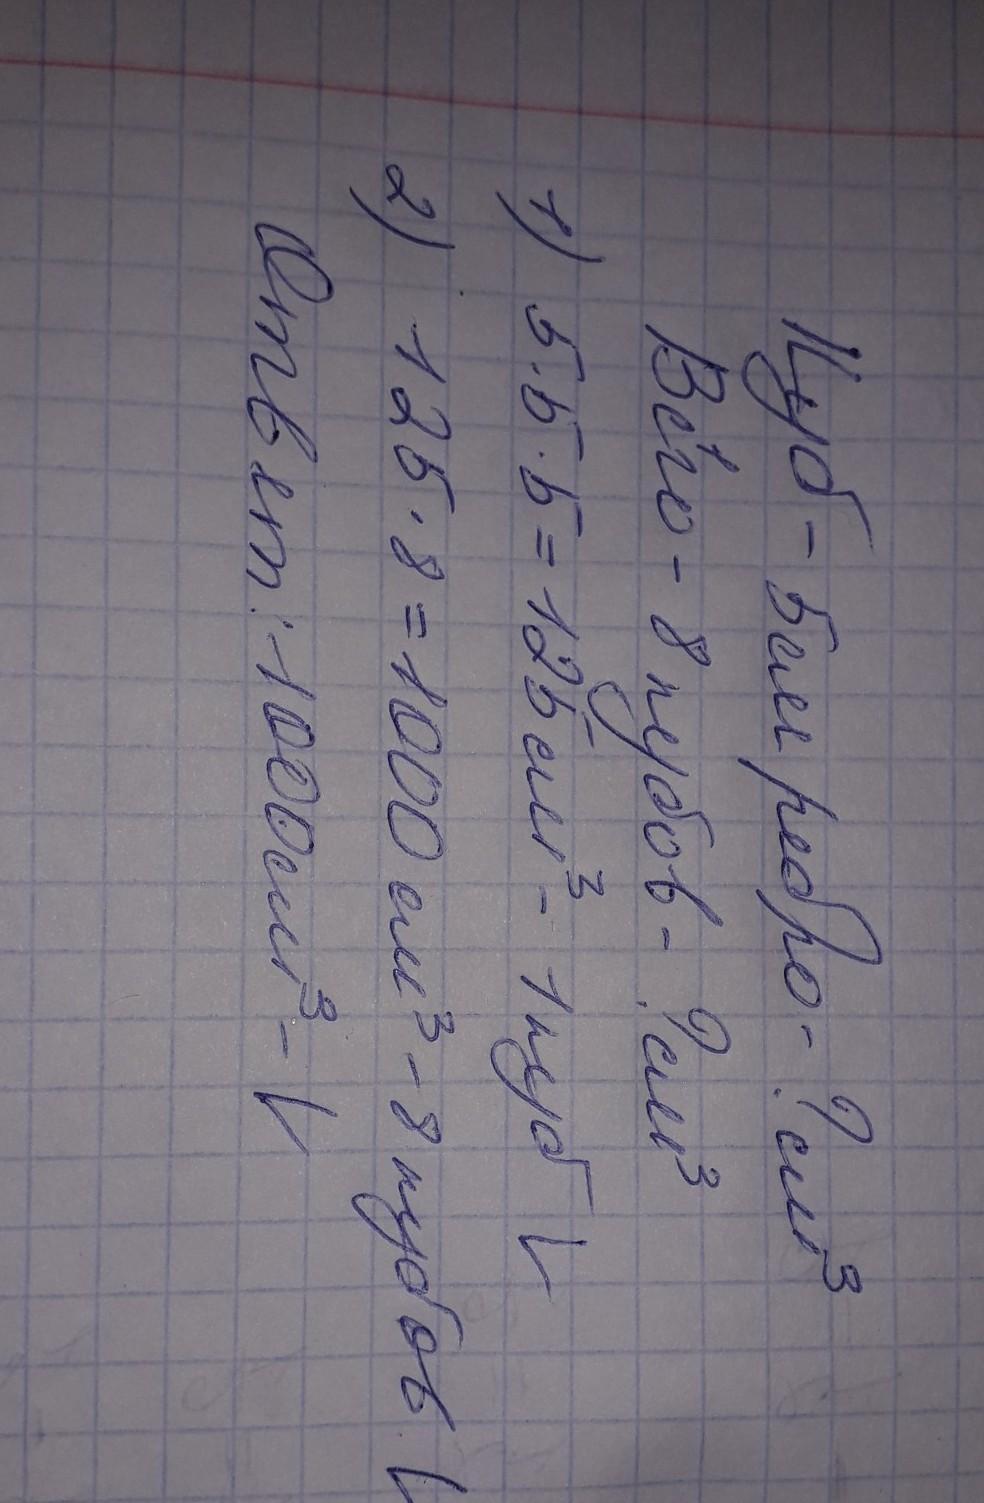 Куб - 5см ребро - ? см³
Всего - 8 кубов - ? см³
1) 5·5·5=125см³ - 1 куб V
2) 125·8=1000 см³ - 8 кубов V
Ответ: 1000см³ - V